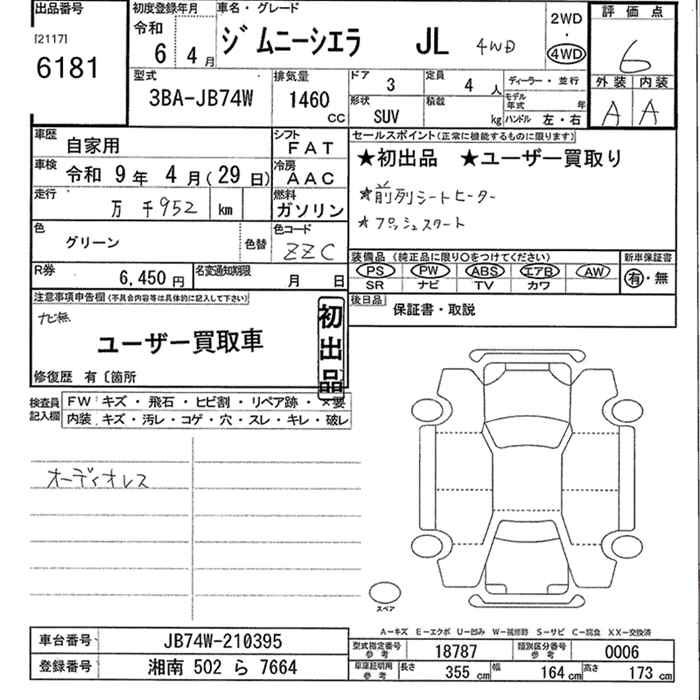 出品番号
[2117]
6181
初度登録年月
令和
6 4 月
車名・グレード
ジムニーシエラ JL 4WD
2WD
・
4WD
評価点
6
外装 内装
A A
型式
3BA-JB74W
排気量
1460
CC
ドア 3
定員 4 人
ディーラー・並行
モデル年式 年
形状 SUV
積載 kg
ハンドル 左・右
車歴 自家用
シフト FAT
車検 令和 9年 4月(29日)
冷房 AAC
走行 万 千952 km
燃料 ガソリン
色 グリーン 色替
色コード ZZC
R券 6,450円
名変通知期限 月 日
セールスポイント(正常に機能するものに限ります)
★初出品 ★ユーザー買取り
★前列シートヒーター
★プッシュスタート
装備品(純正品に限り○をつけてください)
新車保証書
PS PW ABS エアB AW
SR ナビ TV カワ
有・無
後日品 保証書・取説
注意事項申告欄(不具合内容等は具体的に記入して下さい)
ナビ無
ユーザー買取車
初出品
修復歴 有〔箇所
検査員記入欄
FW:キズ・飛石・ヒビ割・リペア跡・×要
内装:キズ・汚レ・コゲ・穴・スレ・キレ・破レ
オーディオレス
スペア
A-キズ E-エクボ U-凹み W-補修跡 S-サビ C-腐食 XX-交換済
車台番号 JB74W-210395
登録番号 湘南 502 ら 7664
型式指定番号 参考 18787
類別区分番号 参考 0006
車庫証明用 参考 長さ 355 cm 幅 164 cm 高さ 173 cm